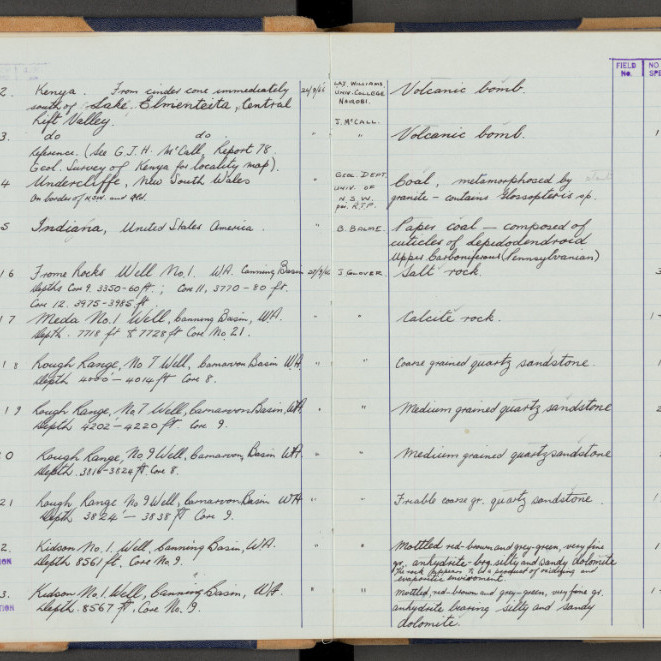 FIELD No.
NO
SPE
2. Kenya. From cinder cone immediately 20/9/66 L.A.J. WILLIAMS Volcanic bomb.
south of Lake Elmenteita, Central UNIV. COLLEGE
Rift Valley. NAIROBI.
3 do do " J. McCALL. Volcanic bomb. 1
Reference. (See G.J.H. McCall, Report 78.
Geol. Survey of Kenya for locality map).
4 Undercliffe, New South Wales " GEOL. DEPT. Coal, metamorphosed by
on border of N.S.W. and Qld. UNIV. OF N.S.W. per. R.T.P. granite – contains Glossopteris sp.
5 Indiana, United States America. " B. BALME. Paper coal – composed of
cuticles of lepidodendroid
Upper Carboniferous (Pennsylvanian)
16 Frome Rocks Well No.1. WA. Canning Basin J. GLOVER. Salt rock. 3
Depths Core 9. 3350-60 ft.; Core 11, 3770-80 ft.
Core 12. 3975-3985 ft.
17 Meda No.1 Well, Canning Basin, W.A. " " Calcite rock. 1
Depth. 7718 ft & 7728 ft Core No. 21.
18 Rough Range, No 7 Well, Carnarvon Basin WA " " Coarse grained quartz sandstone. 1
Depth 4000 – 4014 ft Core 8.
19 Rough Range, No.7 Well, Carnarvon Basin, WA " " Medium grained quartz sandstone 2
Depths 4202 – 4220 ft Core 9.
0 Rough Range, No.9 Well, Carnarvon, Basin WA " " Medium grained quartz sandstone
Depth 3816-3824 ft. Core 8.
21 Rough Range No 9 Well, Carnarvon Basin WA " " Friable coarse gr. quartz sandstone. 1
Depth 3824' – 3838 ft Core 9.
2. Kidson No.1. Well, Canning Basin, W.A. " " Mottled red-brown and grey-green, very fine 1
ION Depth 8561 ft. Core No. 9. gr. anhydrite-brg. silty and sandy dolomite
The rock appears to be a product of oxidizing and
evaporitic environment
3. Kidson No.1. Well, Canning Basin, WA. " " Mottled, red-brown and grey-green, very fine gr. 1
TION Depth. 8567 ft, Core No. 9. anhydrite bearing silty and sandy
dolomite.